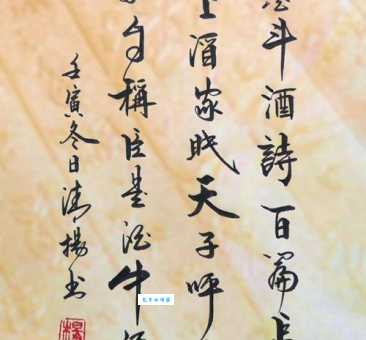 斗酒詩百篇長
上酒家眠天子呼
自稱臣是酒中
壬寅冬日清揚书